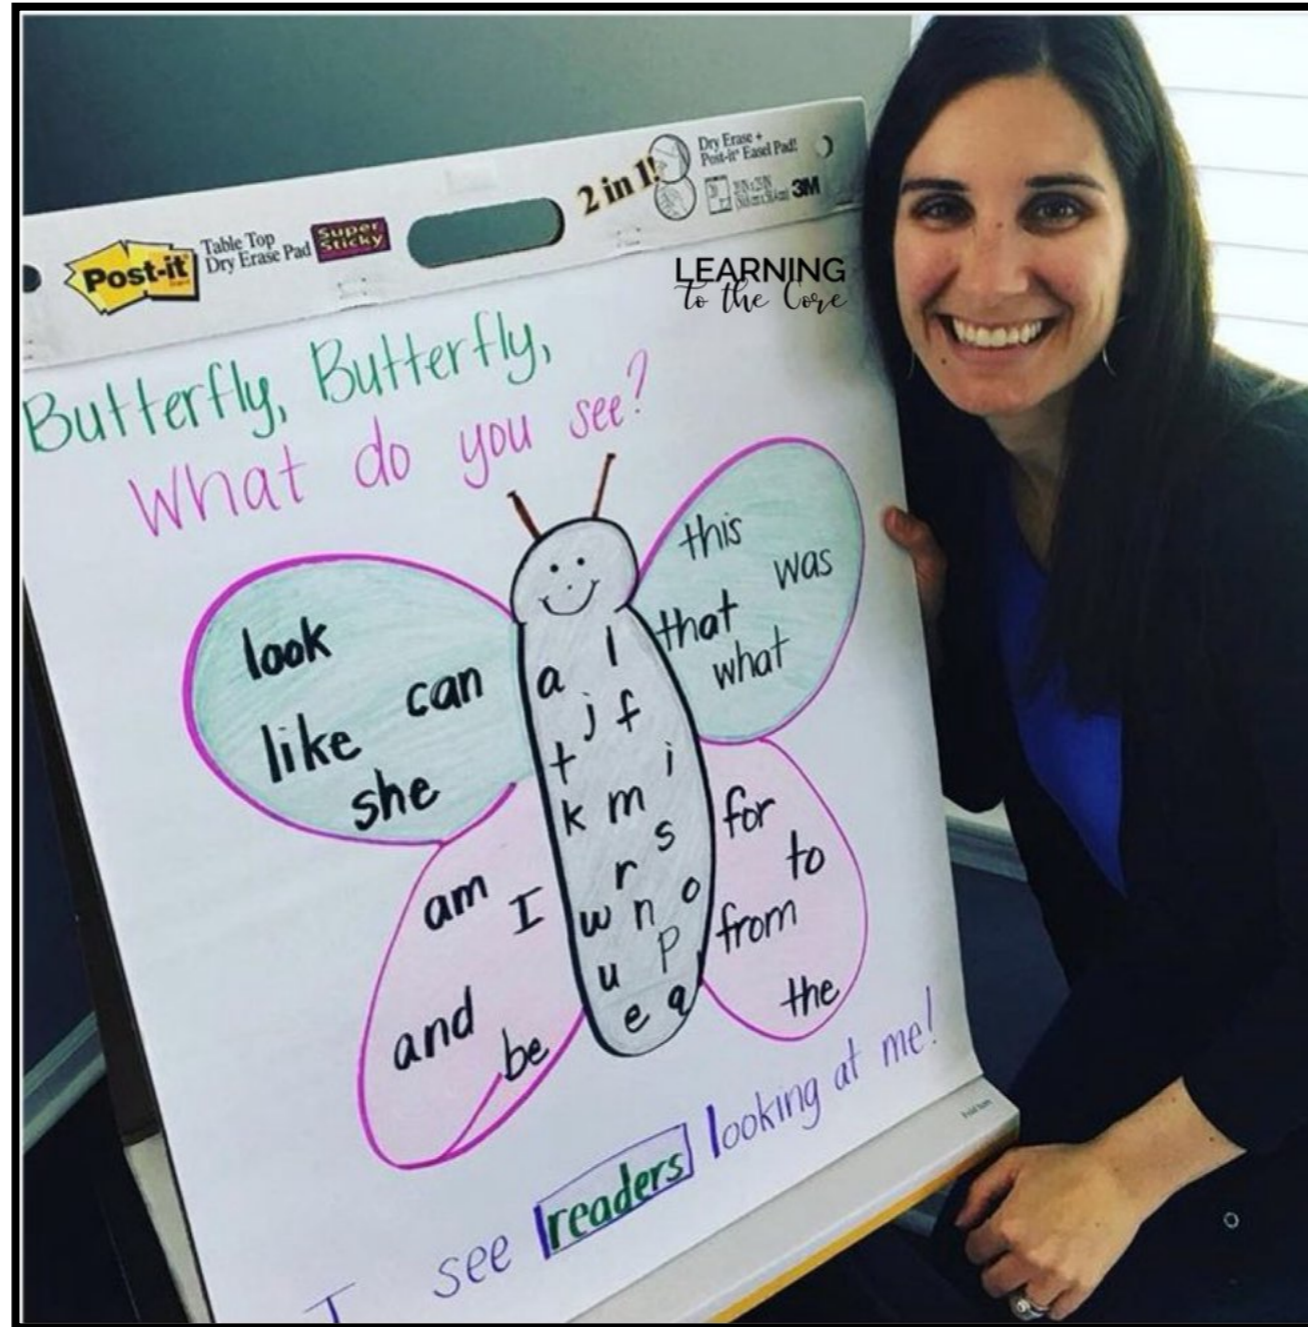 Post-it
Table Top
Dry Erase Pad
Super
Sticky
2 in 1!
Dry Erase +
Post-it® Easel Pad!
3M
LEARNING
to the Core
Butterfly, Butterfly,
What do you see?
look
can
like
she
this
was
that
what
a l
j f
t i
k m
s
r
w n o
u p
e q
am I
and
be
for
to
from
the
I see readers looking at me!